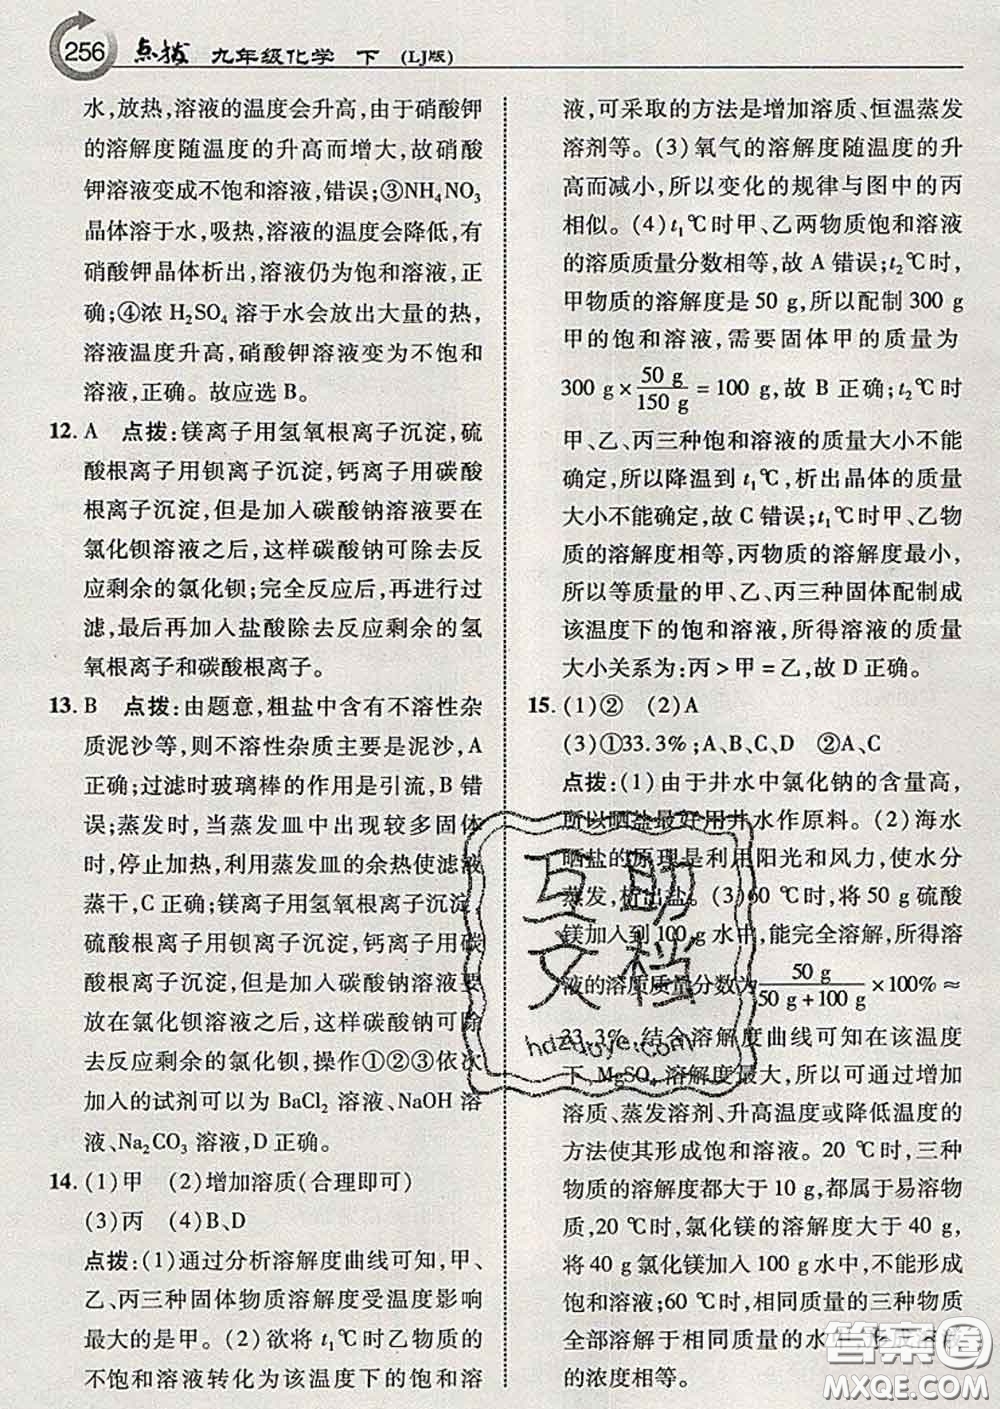 256 点拨 九年级化学 下 (LJ版)
水,放热,溶液的温度会升高,由于硝酸钾
的溶解度随温度的升高而增大,故硝酸
钾溶液变成不饱和溶液,错误;③NH₄NO₃
晶体溶于水,吸热,溶液的温度会降低,有
硝酸钾晶体析出,溶液仍为饱和溶液,正
确;④浓 H₂SO₄ 溶于水会放出大量的热,
溶液温度升高,硝酸钾溶液变为不饱和
溶液,正确。故应选 B。
12. A 点拨:镁离子用氢氧根离子沉淀,硫
酸根离子用钡离子沉淀,钙离子用碳酸
根离子沉淀,但是加入碳酸钠溶液要在
氯化钡溶液之后,这样碳酸钠可除去反
应剩余的氯化钡;完全反应后,再进行过
滤,最后再加入盐酸除去反应剩余的氢
氧根离子和碳酸根离子。
13. B 点拨:由题意,粗盐中含有不溶性杂
质泥沙等,则不溶性杂质主要是泥沙,A
正确;过滤时玻璃棒的作用是引流,B 错
误;蒸发时,当蒸发皿中出现较多固体
时,停止加热,利用蒸发皿的余热使滤液
蒸干,C 正确;镁离子用氢氧根离子沉淀,
硫酸根离子用钡离子沉淀,钙离子用碳
酸根离子沉淀,但是加入碳酸钠溶液要
放在氯化钡溶液之后,这样碳酸钠会除
去反应剩余的氯化钡,操作①②③依次
加入的试剂可以为 BaCl₂ 溶液、NaOH 溶
液、Na₂CO₃ 溶液,D 正确。
14. (1)甲 (2)增加溶质(合理即可)
(3)丙 (4)B、D
点拨:(1)通过分析溶解度曲线可知,甲、
乙、丙三种固体物质溶解度受温度影响
最大的是甲。(2)欲将 t₁℃时乙物质的
不饱和溶液转化为该温度下的饱和溶
液,可采取的方法是增加溶质、恒温蒸发
溶剂等。(3)氧气的溶解度随温度的升
高而减小,所以变化的规律与图中的丙
相似。(4)t₁℃时甲、乙两物质饱和溶液
的溶质质量分数相等,故 A 错误;t₂℃时,
甲物质的溶解度是 50 g,所以配制 300 g
甲的饱和溶液,需要固体甲的质量为
300 g×50 g/150 g=100 g,故 B 正确;t₂℃时
甲、乙、丙三种饱和溶液的质量大小不能
确定,所以降温到 t₁℃,析出晶体的质量
大小不能确定,故 C 错误;t₁℃时甲、乙物
质的溶解度相等,丙物质的溶解度最小,
所以等质量的甲、乙、丙三种固体配制成
该温度下的饱和溶液,所得溶液的质量
大小关系为:丙>甲=乙,故 D 正确。
15. (1)② (2)A
(3)①33.3%;A、B、C、D ②A、C
点拨:(1)由于井水中氯化钠的含量高,
所以晒盐最好用井水作原料。(2)海水
晒盐的原理是利用阳光和风力,使水分
蒸发,析出盐。(3)60 ℃时,将 50 g 硫酸
镁加入到 100 g 水中,能完全溶解,所得溶
液的溶质质量分数为50 g/50 g+100 g×100%≈
33.3%,结合溶解度曲线可知在该温度
下 MgSO₄ 溶解度最大,所以可通过增加
溶质、蒸发溶剂、升高温度或降低温度的
方法使其形成饱和溶液。20 ℃时,三种
物质的溶解度都大于 10 g,都属于易溶物
质,20 ℃时,氯化镁的溶解度大于 40 g,
将 40 g 氯化镁加入 100 g 水中,不能形成
饱和溶液;60 ℃时,相同质量的三种物质
全部溶解于相同质量的水中
的浓度相等。
互助
文档
hdzuoye.com
答案圈
MXQE.COM